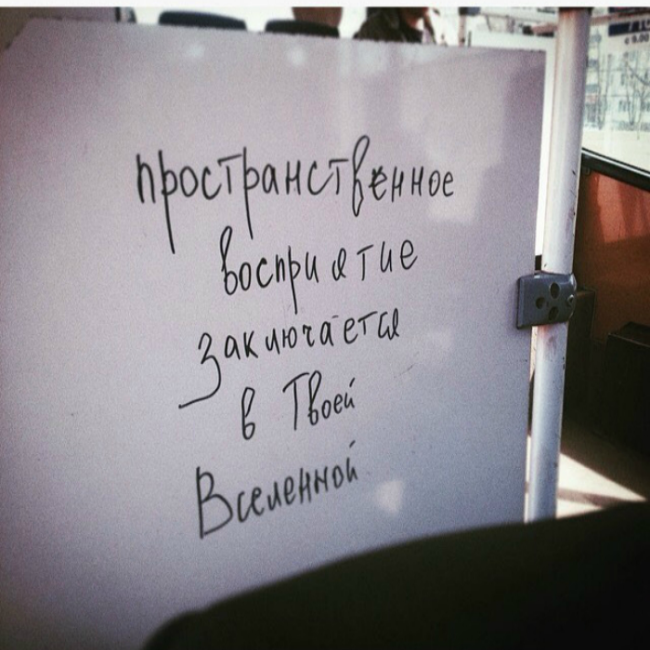 пространственное
восприятие
заключается
в Твоей
Вселенной